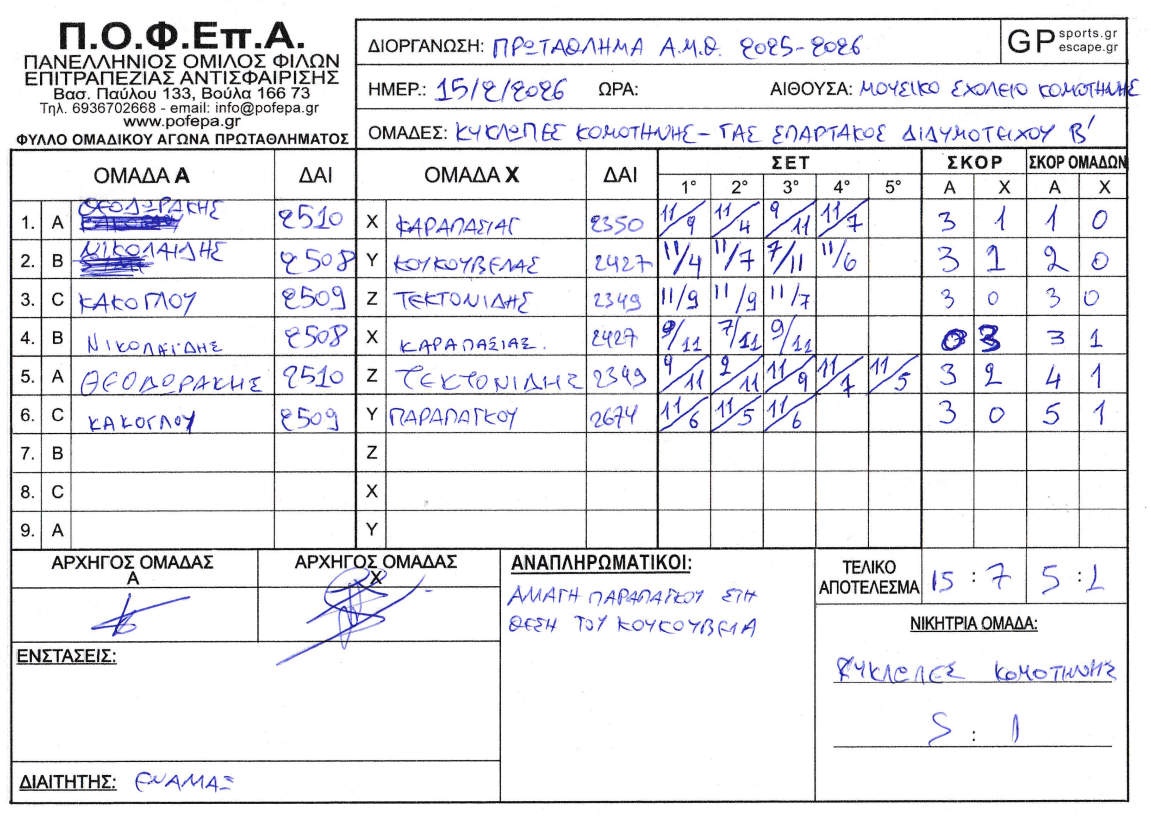 Π.Ο.Φ.Επ.Α.
ΠΑΝΕΛΛΗΝΙΟΣ ΟΜΙΛΟΣ ΦΙΛΩΝ
ΕΠΙΤΡΑΠΕΖΙΑΣ ΑΝΤΙΣΦΑΙΡΙΣΗΣ
Βασ. Παύλου 133, Βούλα 166 73
Τηλ. 6936702668 - email: info@pofepa.gr
www.pofepa.gr
ΦΥΛΛΟ ΟΜΑΔΙΚΟΥ ΑΓΩΝΑ ΠΡΩΤΑΘΛΗΜΑΤΟΣ
ΔΙΟΡΓΑΝΩΣΗ: ΠΡΩΤΑΘΛΗΜΑ Α.Μ.Θ. 2025-2026
GP sports.gr escape.gr
ΗΜΕΡ.: 15/2/2026 ΩΡΑ: ΑΙΘΟΥΣΑ: ΜΟΥΣΙΚΟ ΣΧΟΛΕΙΟ ΚΟΜΟΤΗΝΗΣ
ΟΜΑΔΕΣ: ΚΥΚΛΩΠΕΣ ΚΟΜΟΤΗΝΗΣ - ΓΑΣ ΣΠΑΡΤΑΚΟΣ ΔΙΔΥΜΟΤΕΙΧΟΥ Β'
ΟΜΑΔΑ Α ΔΑΙ ΟΜΑΔΑ Χ ΔΑΙ ΣΕΤ ΣΚΟΡ ΣΚΟΡ ΟΜΑΔΩΝ
1° 2° 3° 4° 5° Α Χ Α Χ
1. A ΘΕΟΔΩΡΑΚΗΣ 2510 X ΚΑΡΑΠΑΣΙΑΣ 2350 11/9 11/4 9/11 11/7 3 1 1 0
2. B ΝΙΚΟΛΑΙΔΗΣ 2508 Y ΚΟΥΚΟΥΒΕΛΑΣ 2427 11/4 11/7 7/11 11/6 3 1 2 0
3. C ΚΑΚΟΓΛΟΥ 2509 Z ΤΕΚΤΟΝΙΔΗΣ 2349 11/9 11/9 11/7 3 0 3 0
4. B ΝΙΚΟΛΑΙΔΗΣ 2508 X ΚΑΡΑΠΑΣΙΑΣ. 2427 9/11 7/11 9/11 0 3 3 1
5. A ΘΕΟΔΟΡΑΚΗΣ 2510 Z ΤΕΚΤΟΝΙΔΗΣ 2349 9/11 2/11 11/9 11/7 11/5 3 2 4 1
6. C ΚΑΚΟΓΛΟΥ 2509 Y ΠΑΡΑΠΑΓΚΟΥ 2674 11/6 11/5 11/6 3 0 5 1
7. B Z
8. C X
9. A Y
ΑΡΧΗΓΟΣ ΟΜΑΔΑΣ Α
ΑΡΧΗΓΟΣ ΟΜΑΔΑΣ Χ
ΑΝΑΠΛΗΡΩΜΑΤΙΚΟΙ:
ΑΛΛΑΓΗ ΠΑΡΑΠΑΓΚΟΥ ΣΤΗ
ΘΕΣΗ ΤΟΥ ΚΟΥΚΟΥΒΕΛΑ
ΤΕΛΙΚΟ ΑΠΟΤΕΛΕΣΜΑ 15 : 7 5 : 1
ΝΙΚΗΤΡΙΑ ΟΜΑΔΑ:
ΚΥΚΛΩΠΕΣ ΚΟΜΟΤΗΝΗΣ
5 : 1
ΕΝΣΤΑΣΕΙΣ:
ΔΙΑΙΤΗΤΗΣ: